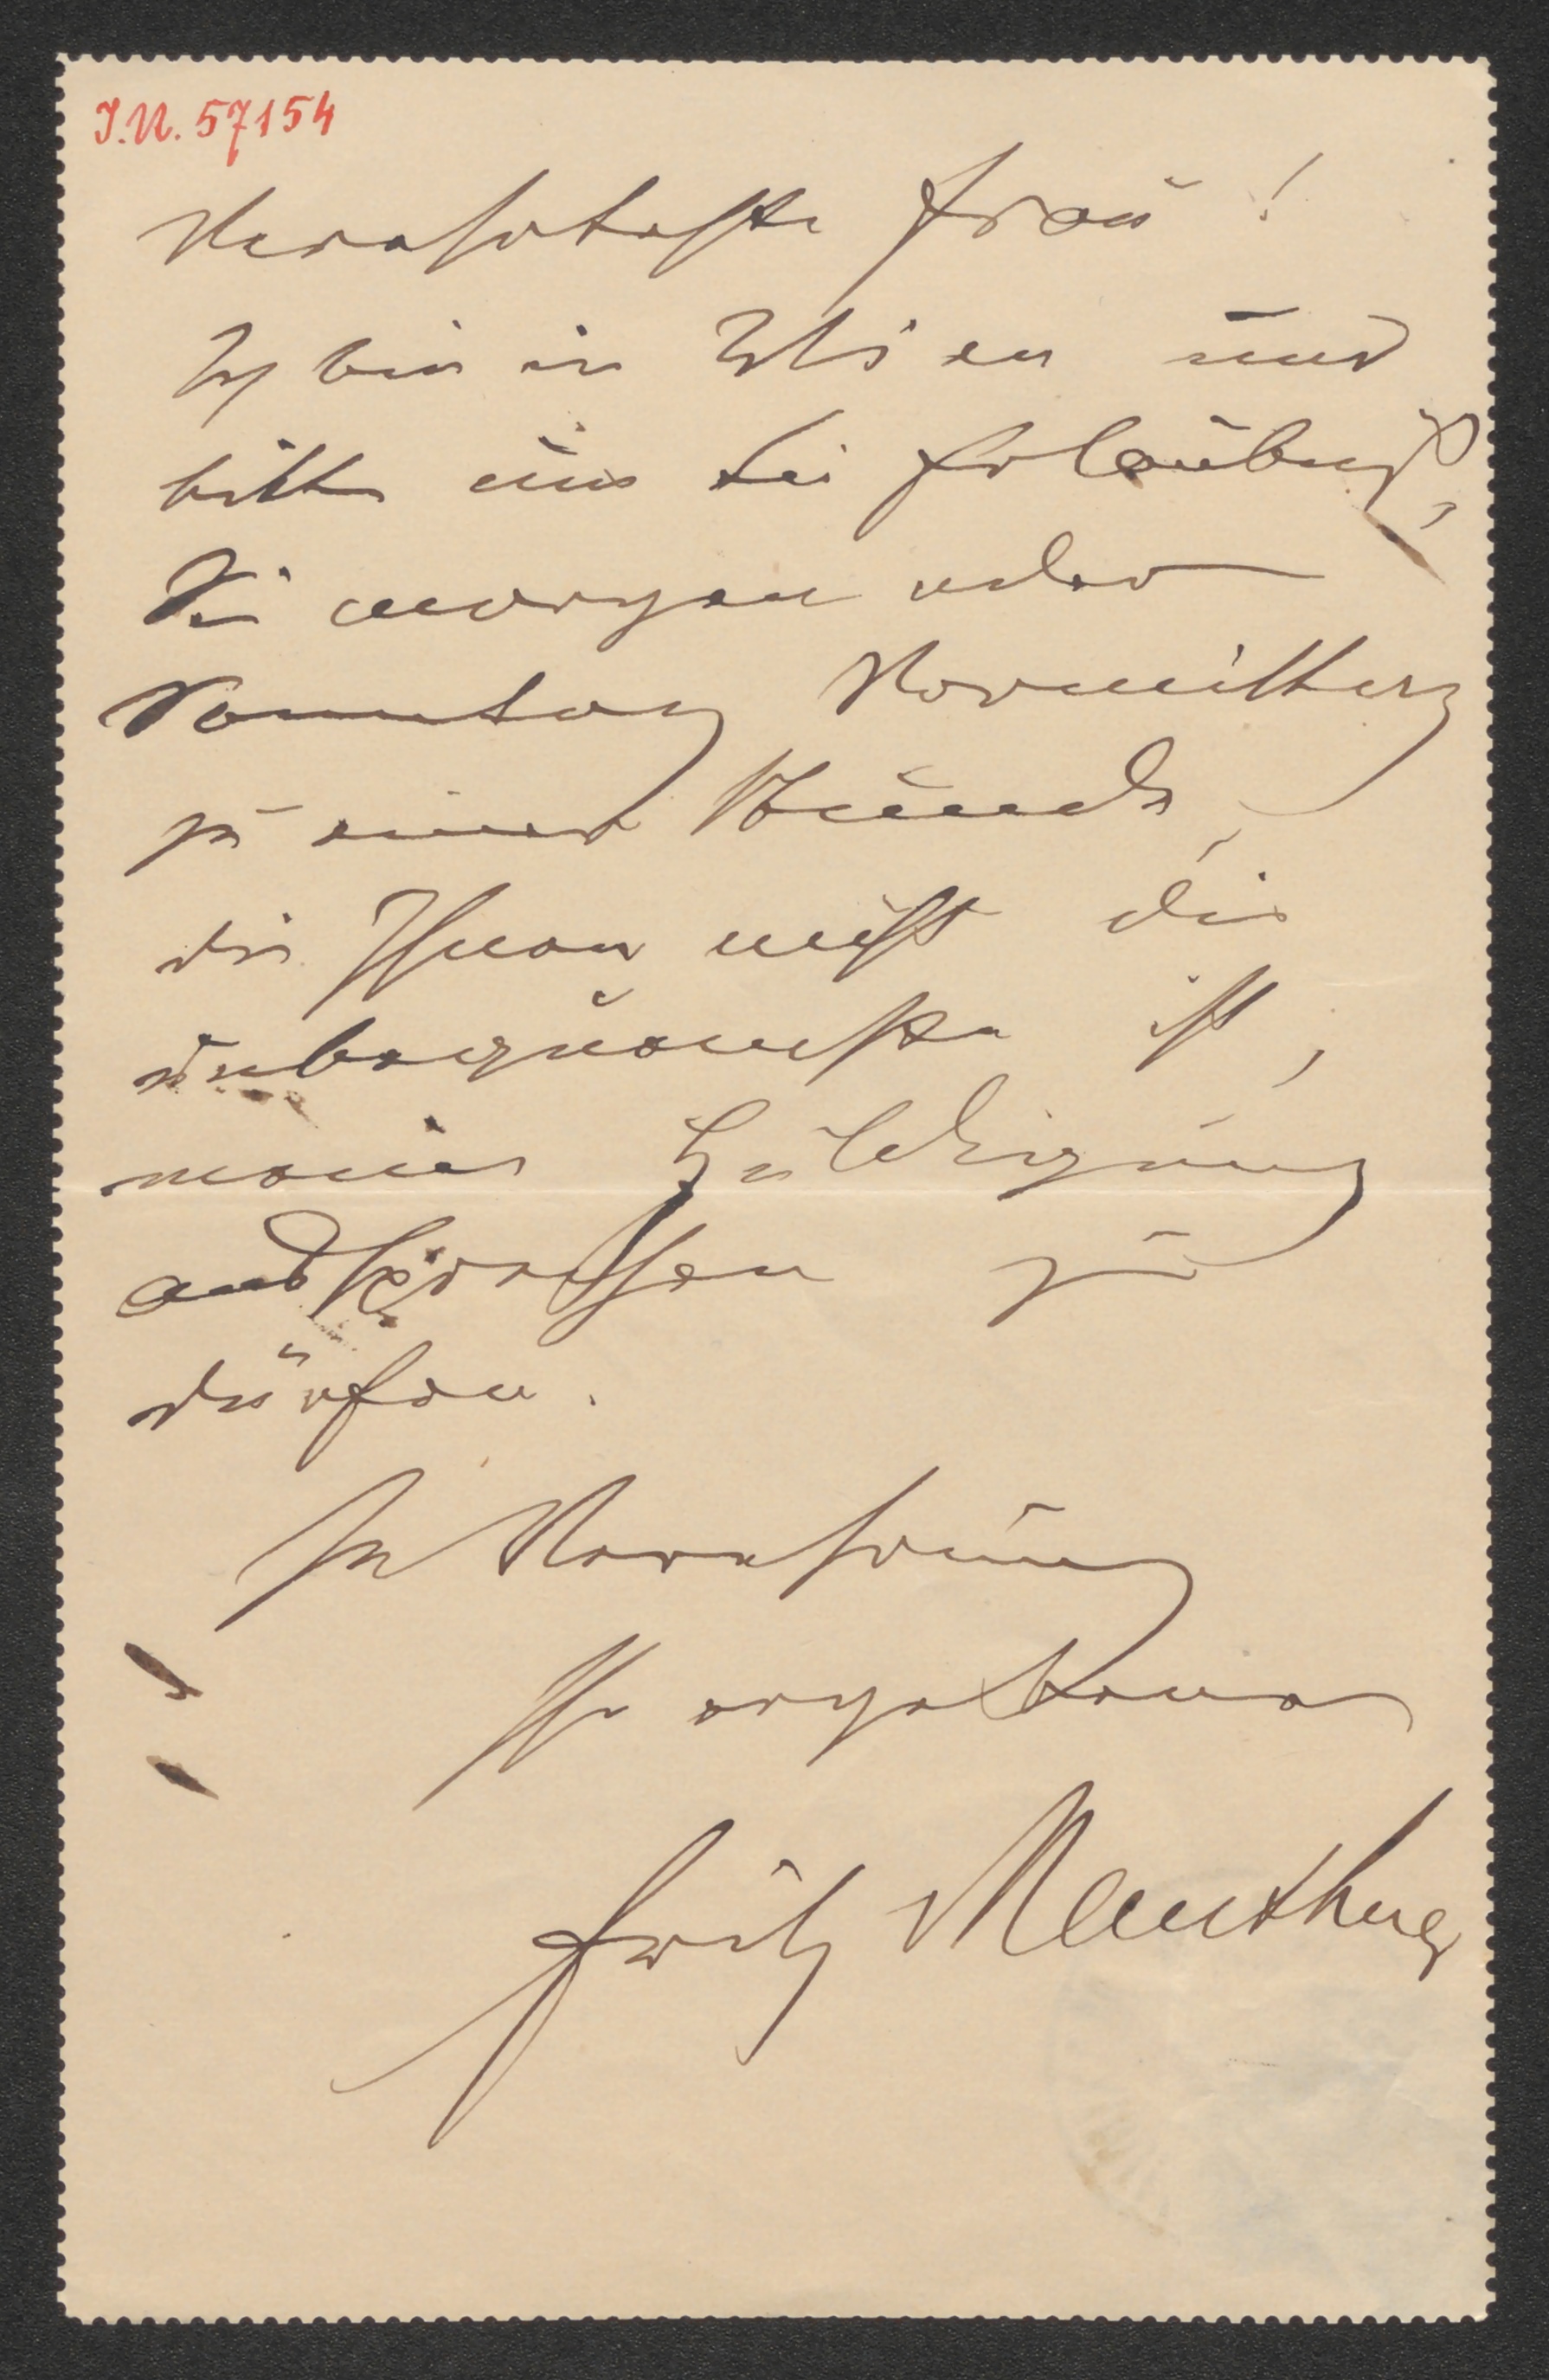 I.N. 57154
Verehrteste Frau!
Ich bin in Wien und
bitte um die Erlaubniß,
Sie morgen oder
Sonntag Vormittag
zu einer Stunde,
die Ihnen nicht die
unbequemste ist,
meine Huldigung
aussprechen zu
dürfen.
In Verehrung
Ihr ergebener
Fritz Mauthner